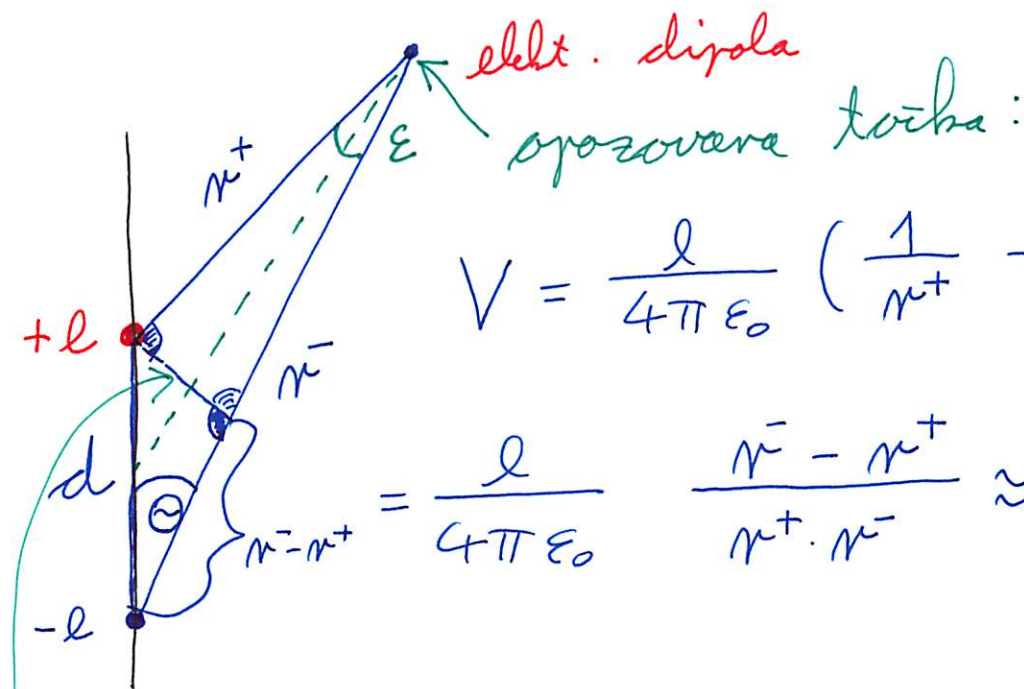 elekt. dipola
opazovana točka:
r⁺
ε
V = e / 4π ε₀ ( 1 / r⁺ -
+e
r⁻
d
Θ
r⁻-r⁺
= e / 4π ε₀ r⁻ - r⁺ / r⁺ · r⁻ ≈
-e